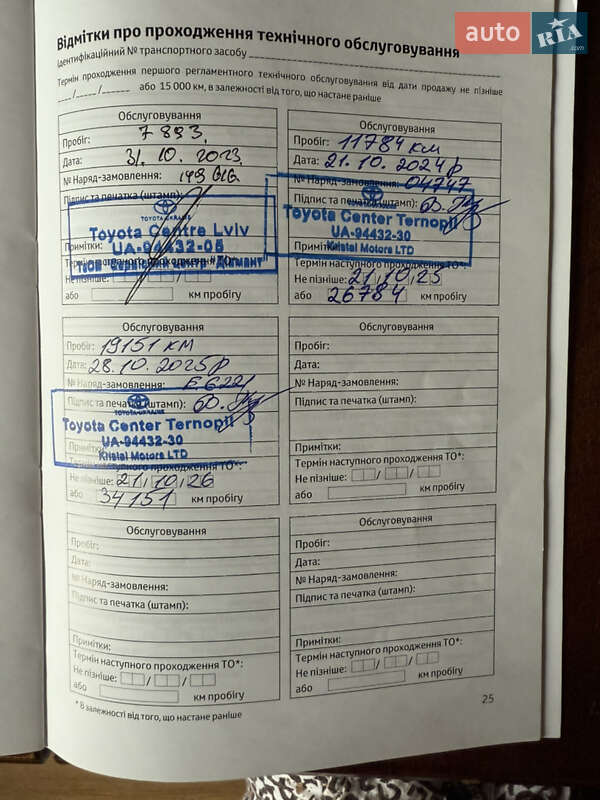 auto RIA.com
Відмітки про проходження технічного обслуговування
Ідентифікаційний № транспортного засобу
Термін проходження першого регламентного технічного обслуговування від дати продажу не пізніше
__/__/__ або 15 000 км, в залежності від того, що настане раніше
Обслуговування
Пробіг: 7893
Дата: 31.10.2023
№ Наряд-замовлення:
Підпис та печатка (штамп):
TOYOTA-UKRAINE
Toyota Centre Lviv
UA-94432-05
Примітки:
Не пізніше:
або км пробігу
Обслуговування
Пробіг: 11784 км
Дата: 21.10.2024 р
№ Наряд-замовлення: 04747
Підпис та печатка (штамп):
Toyota Center Ternopil
UA-94432-30
Kristal Motors LTD
Примітки:
Термін наступного проходження ТО*:
Не пізніше: 21/10/25
або 26784 км пробігу
Обслуговування
Пробіг: 19151 км
Дата: 28.10.2025 р
№ Наряд-замовлення: E6221
Підпис та печатка (штамп):
TOYOTA-UKRAINE
Toyota Center Ternopil
UA-94432-30
Kristal Motors LTD
Примітки:
Термін наступного проходження ТО*:
Не пізніше: 21/10/26
або 34151 км пробігу
Обслуговування
Пробіг:
Дата:
№ Наряд-замовлення:
Підпис та печатка (штамп):
Примітки:
Термін наступного проходження ТО*:
Не пізніше: / /
або км пробігу
Обслуговування
Пробіг:
Дата:
№ Наряд-замовлення:
Підпис та печатка (штамп):
Примітки:
Термін наступного проходження ТО*:
Не пізніше: / /
або км пробігу
Обслуговування
Пробіг:
Дата:
№ Наряд-замовлення:
Підпис та печатка (штамп):
Примітки:
Термін наступного проходження ТО*:
Не пізніше: / /
або км пробігу
* В залежності від того, що настане раніше
25